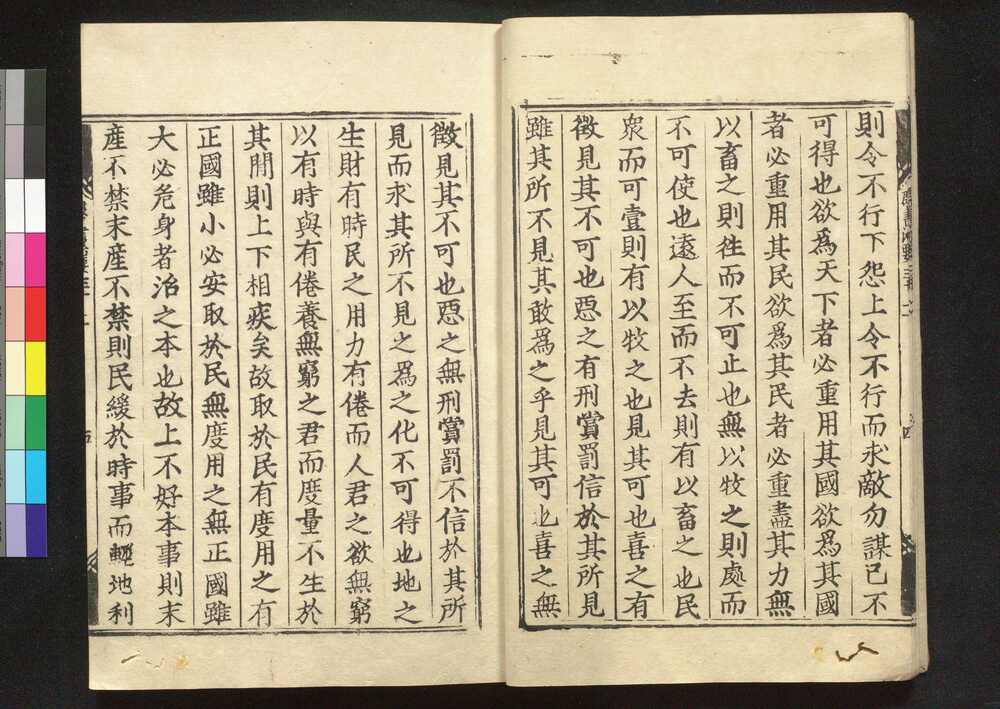 則令不行下怨上令不行而求敵勿謀已不
可得也欲爲天下者必重用其國欲爲其國
者必重用其民欲爲其民者必重盡其力無
以畜之則徃而不可止也無以牧之則處而
不可使也遠人至而不去則有以畜之也民
衆而可壹則有以牧之也見其可也喜之有
徵見其不可也惡之有刑賞罰信於其所見
雖其所不見其敢爲之乎見其可也喜之無
徵見其不可也惡之無刑賞罰不信於其所
見而求其所不見之爲之化不可得也地之
生財有時民之用力有倦而人君之欲無窮
以有時與有倦養無窮之君而度量不生於
其間則上下相疾矣故取於民有度用之有
正國雖小必安取於民無度用之無正國雖
大必危身者治之本也故上不好本事則末
産不禁末産不禁則民緩於時事而輕地利